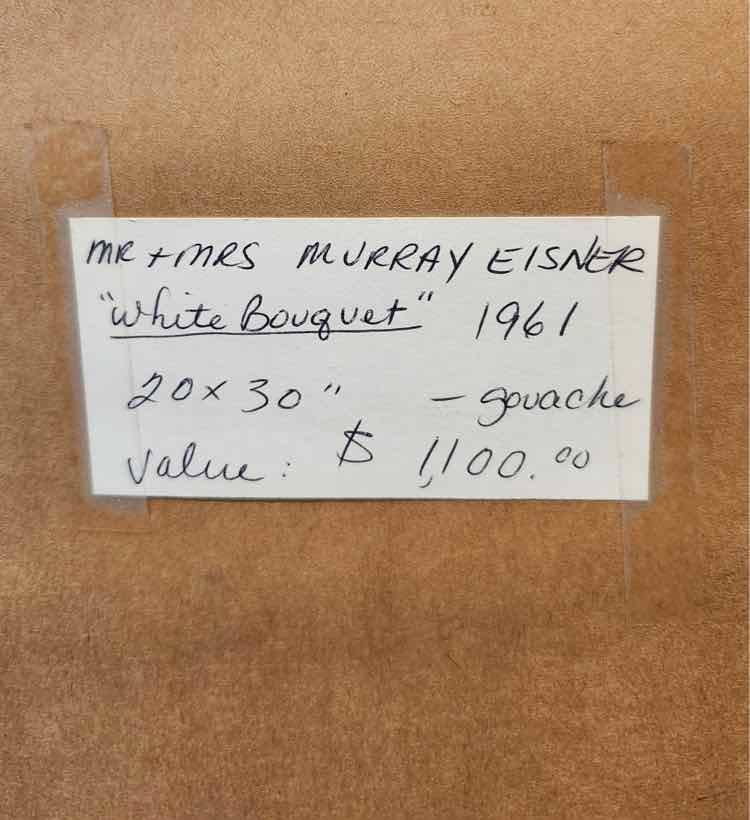 MR + MRS MURRAY EISNER
"White Bouquet" 1961
20 x 30" - gouache
Value: $ 1,100.00